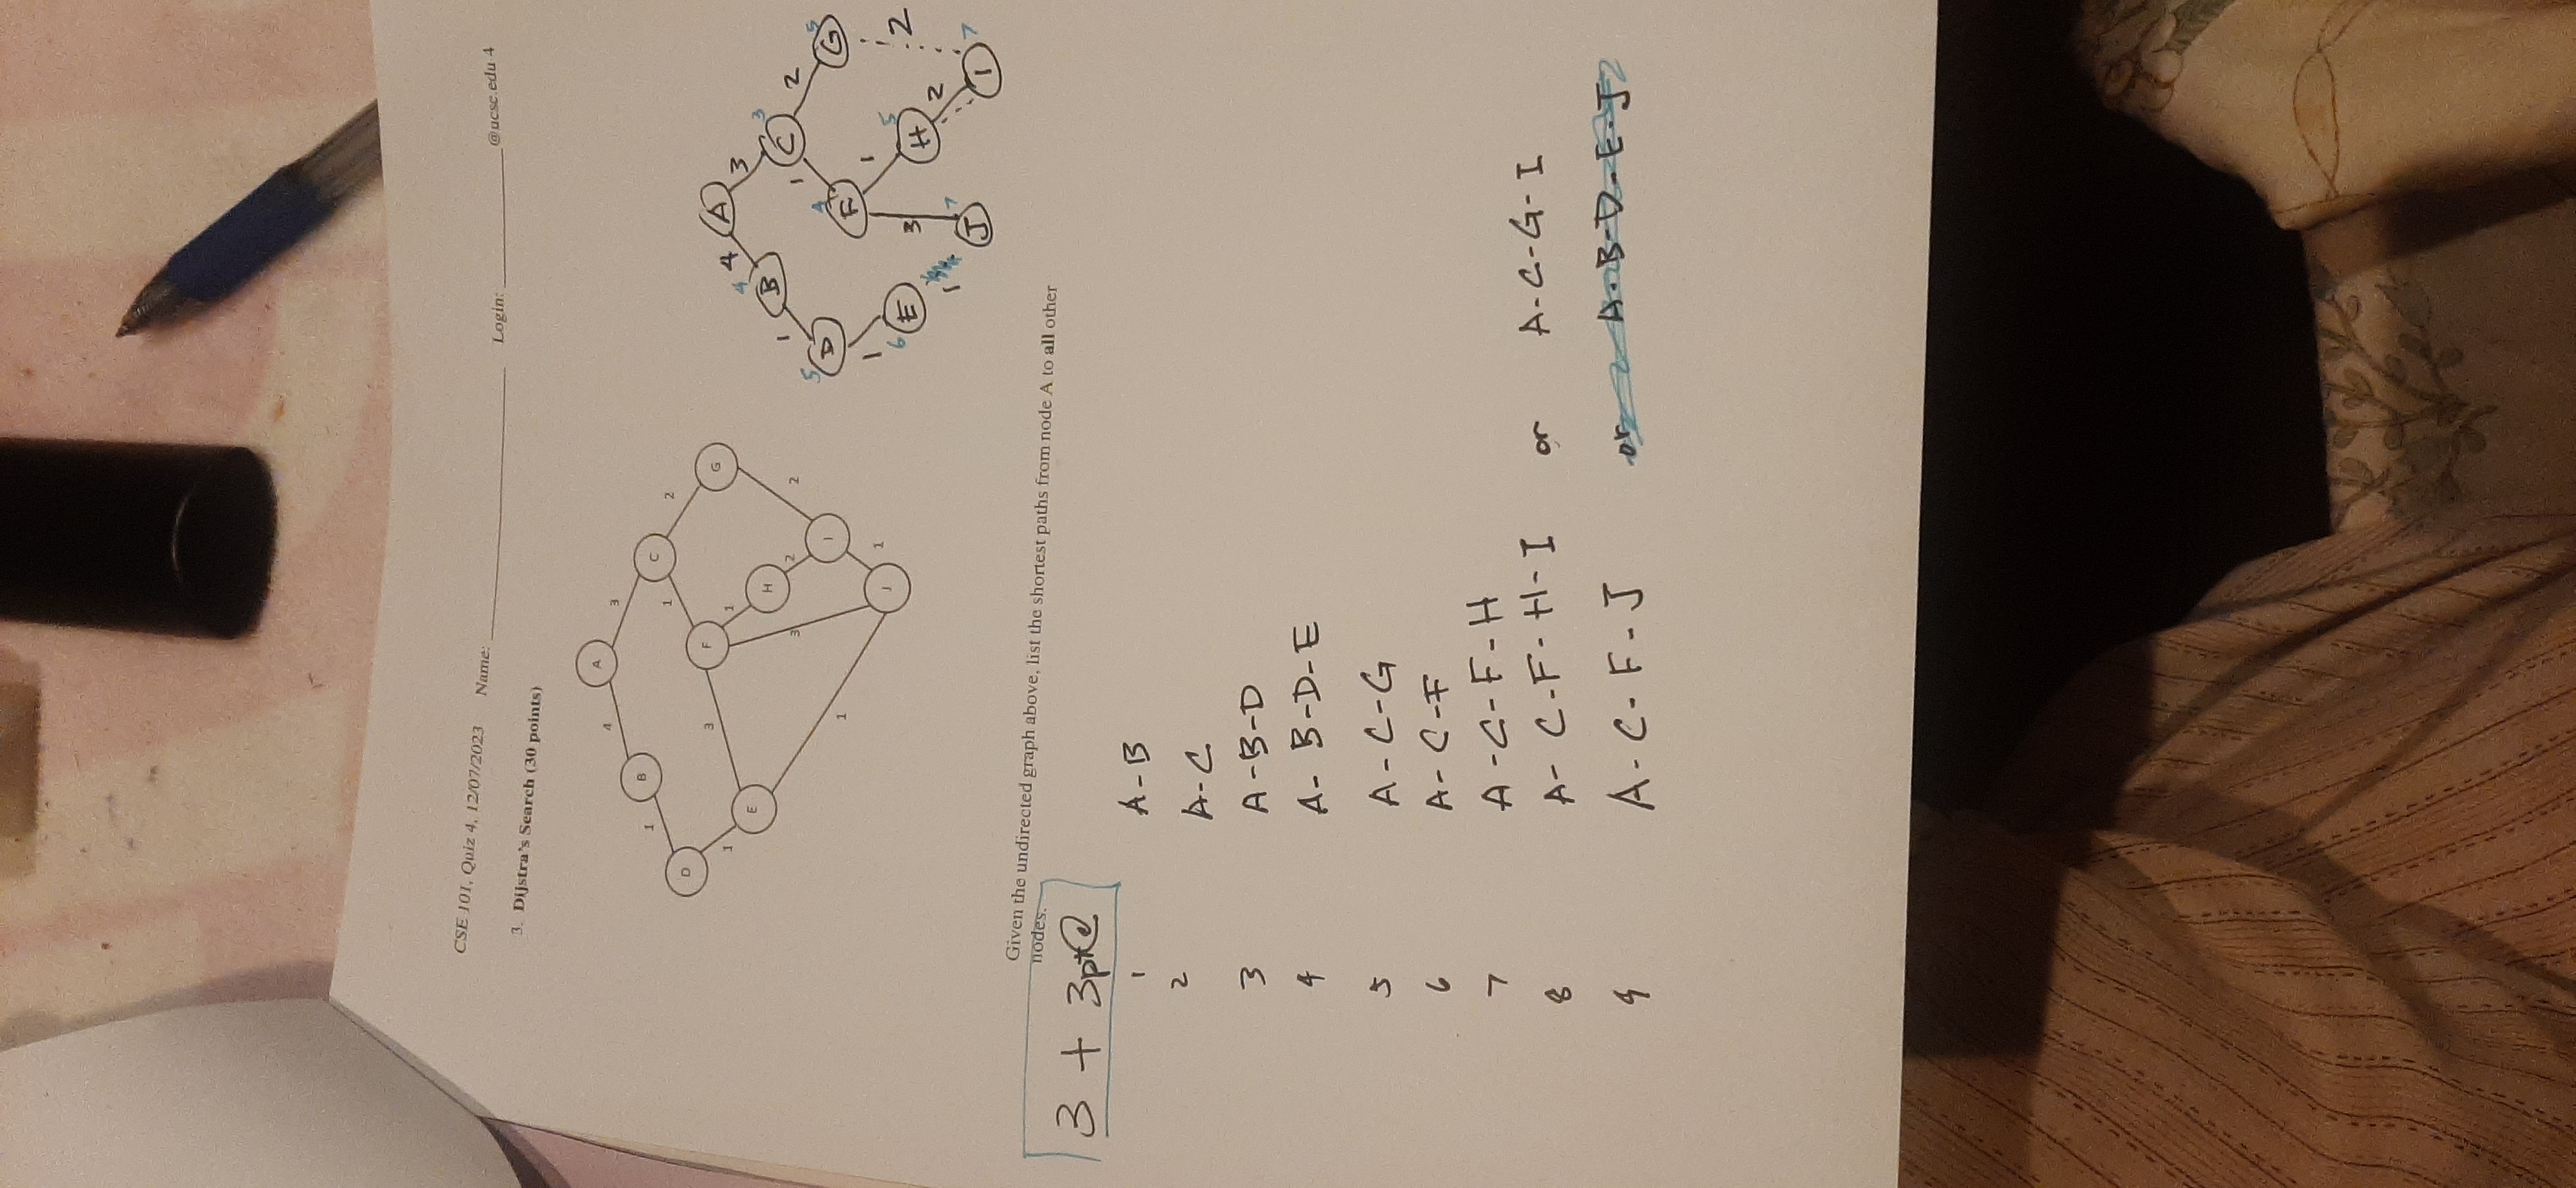 CSE 101, Quiz 4, 12/07/2023 Name: Login: @ucsc.edu 4
3. Dijstra's Search (30 points)
A
4
3
B
C
1
1
2
D
F
G
3
1
1
E
H
3
2
2
I
1
J
1
A
4
4
3
3
B
C
1
1
2
5
D
4
F
5
G
1
1
6
E
5
H
2
3
2
1
7
J
I
7
Given the undirected graph above, list the shortest paths from node A to all other
nodes.
3 + 3pt@
1 A-B
2 A-C
3 A-B-D
4 A-B-D-E
5 A-C-G
6 A-C-F
7 A-C-F-H
8 A-C-F-H-I or A-C-G-I
9 A-C-F-J or A-B-D-E-J